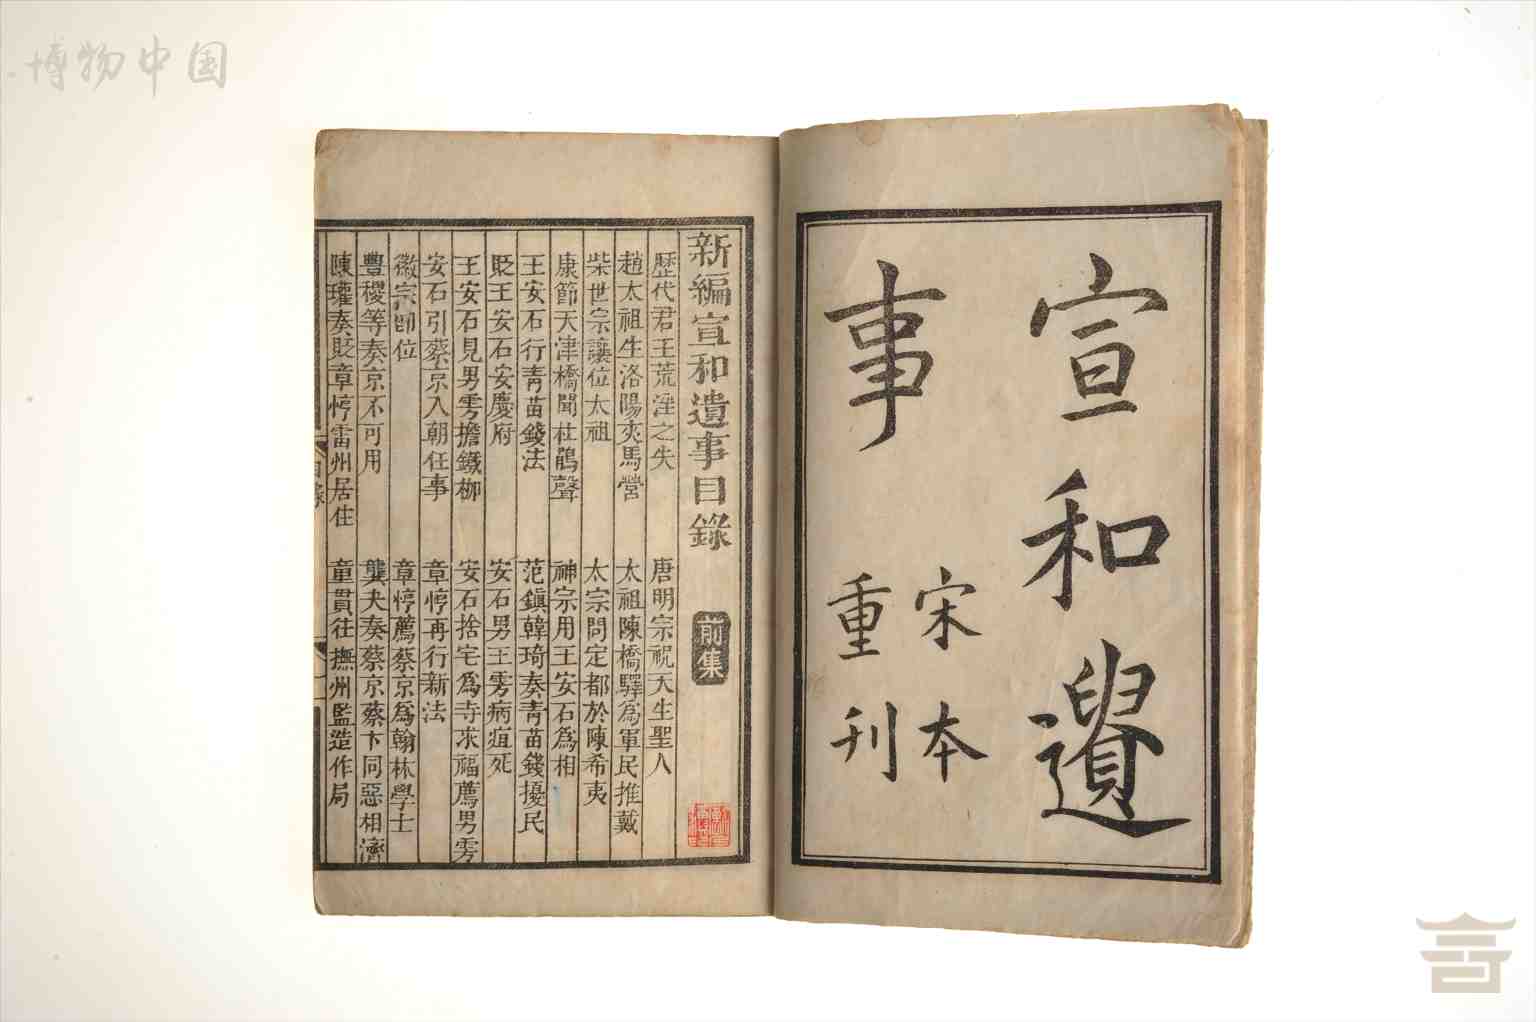 博物中国
宣和遺
事
宋本
重刊
新編宣和遺事目錄 前集
歷代君王荒淫之失 唐明宗祝天生聖人
趙太祖生洛陽夾馬營 太祖陳橋驛為軍民推戴
柴世宗讓位太祖 太宗問定都於陳希夷
康節天津橋聞杜鵑聲 神宗用王安石為相
王安石行青苗錢法 范鎮韓琦奏青苗錢擾民
貶王安石安慶府 安石男王雱病疽死
王安石見男雱擔鐵枷 安石捨宅為寺求福薦男雱
安石引蔡京入朝任事 章惇再行新法
徽宗即位 章惇薦蔡京為翰林學士
豐稷等奏京不可用 龔夬奏蔡京蔡卞同惡相濟
陳瓘奏貶章惇雷州居住 童貫往撫州監造作局